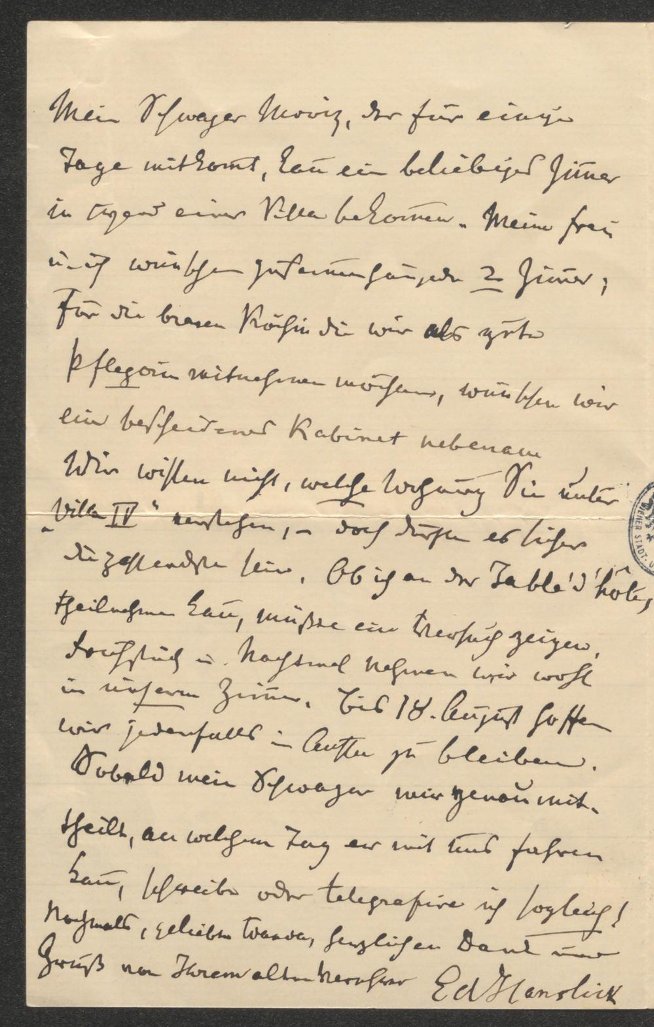 Mein Schwager Moriz, der für einige
Tage mitkomt, kan ein beliebiges Zimer
in irgend einer Villa bekomen. Meine Frau
u. ich wünschen zusammenhängende 2 Zimer;
für die brave Köchin die wir als gute
Pflegerin mitnehmen möchten, wünschen wir
ein bescheidenes Kabinet nebenan
Wir wissen nicht, welche Wohnung Sie unter
„Villa IV" verstehen, – doch dürfte es sicher
die passendste sein. Ob ich an der Table d'hôte,
theilnehmen kan, müßte ein Versuch zeigen.
Frühstück u. Nachtmal nehmen wir wohl
in unserm Zimer. Bis 18. August hoffen
wir jedenfalls in Aussee zu bleiben.
Sobald mein Schwager mir genau mit-
theilt, an welchem Tag er mit uns fahren
kan, schreibe oder telegrafire ich sogleich!
Nochmals, geliebte Wanda, herzlichen Dank und
Gruß von Ihrem alten Verehrer Ed Hanslick
WIENER STADT-